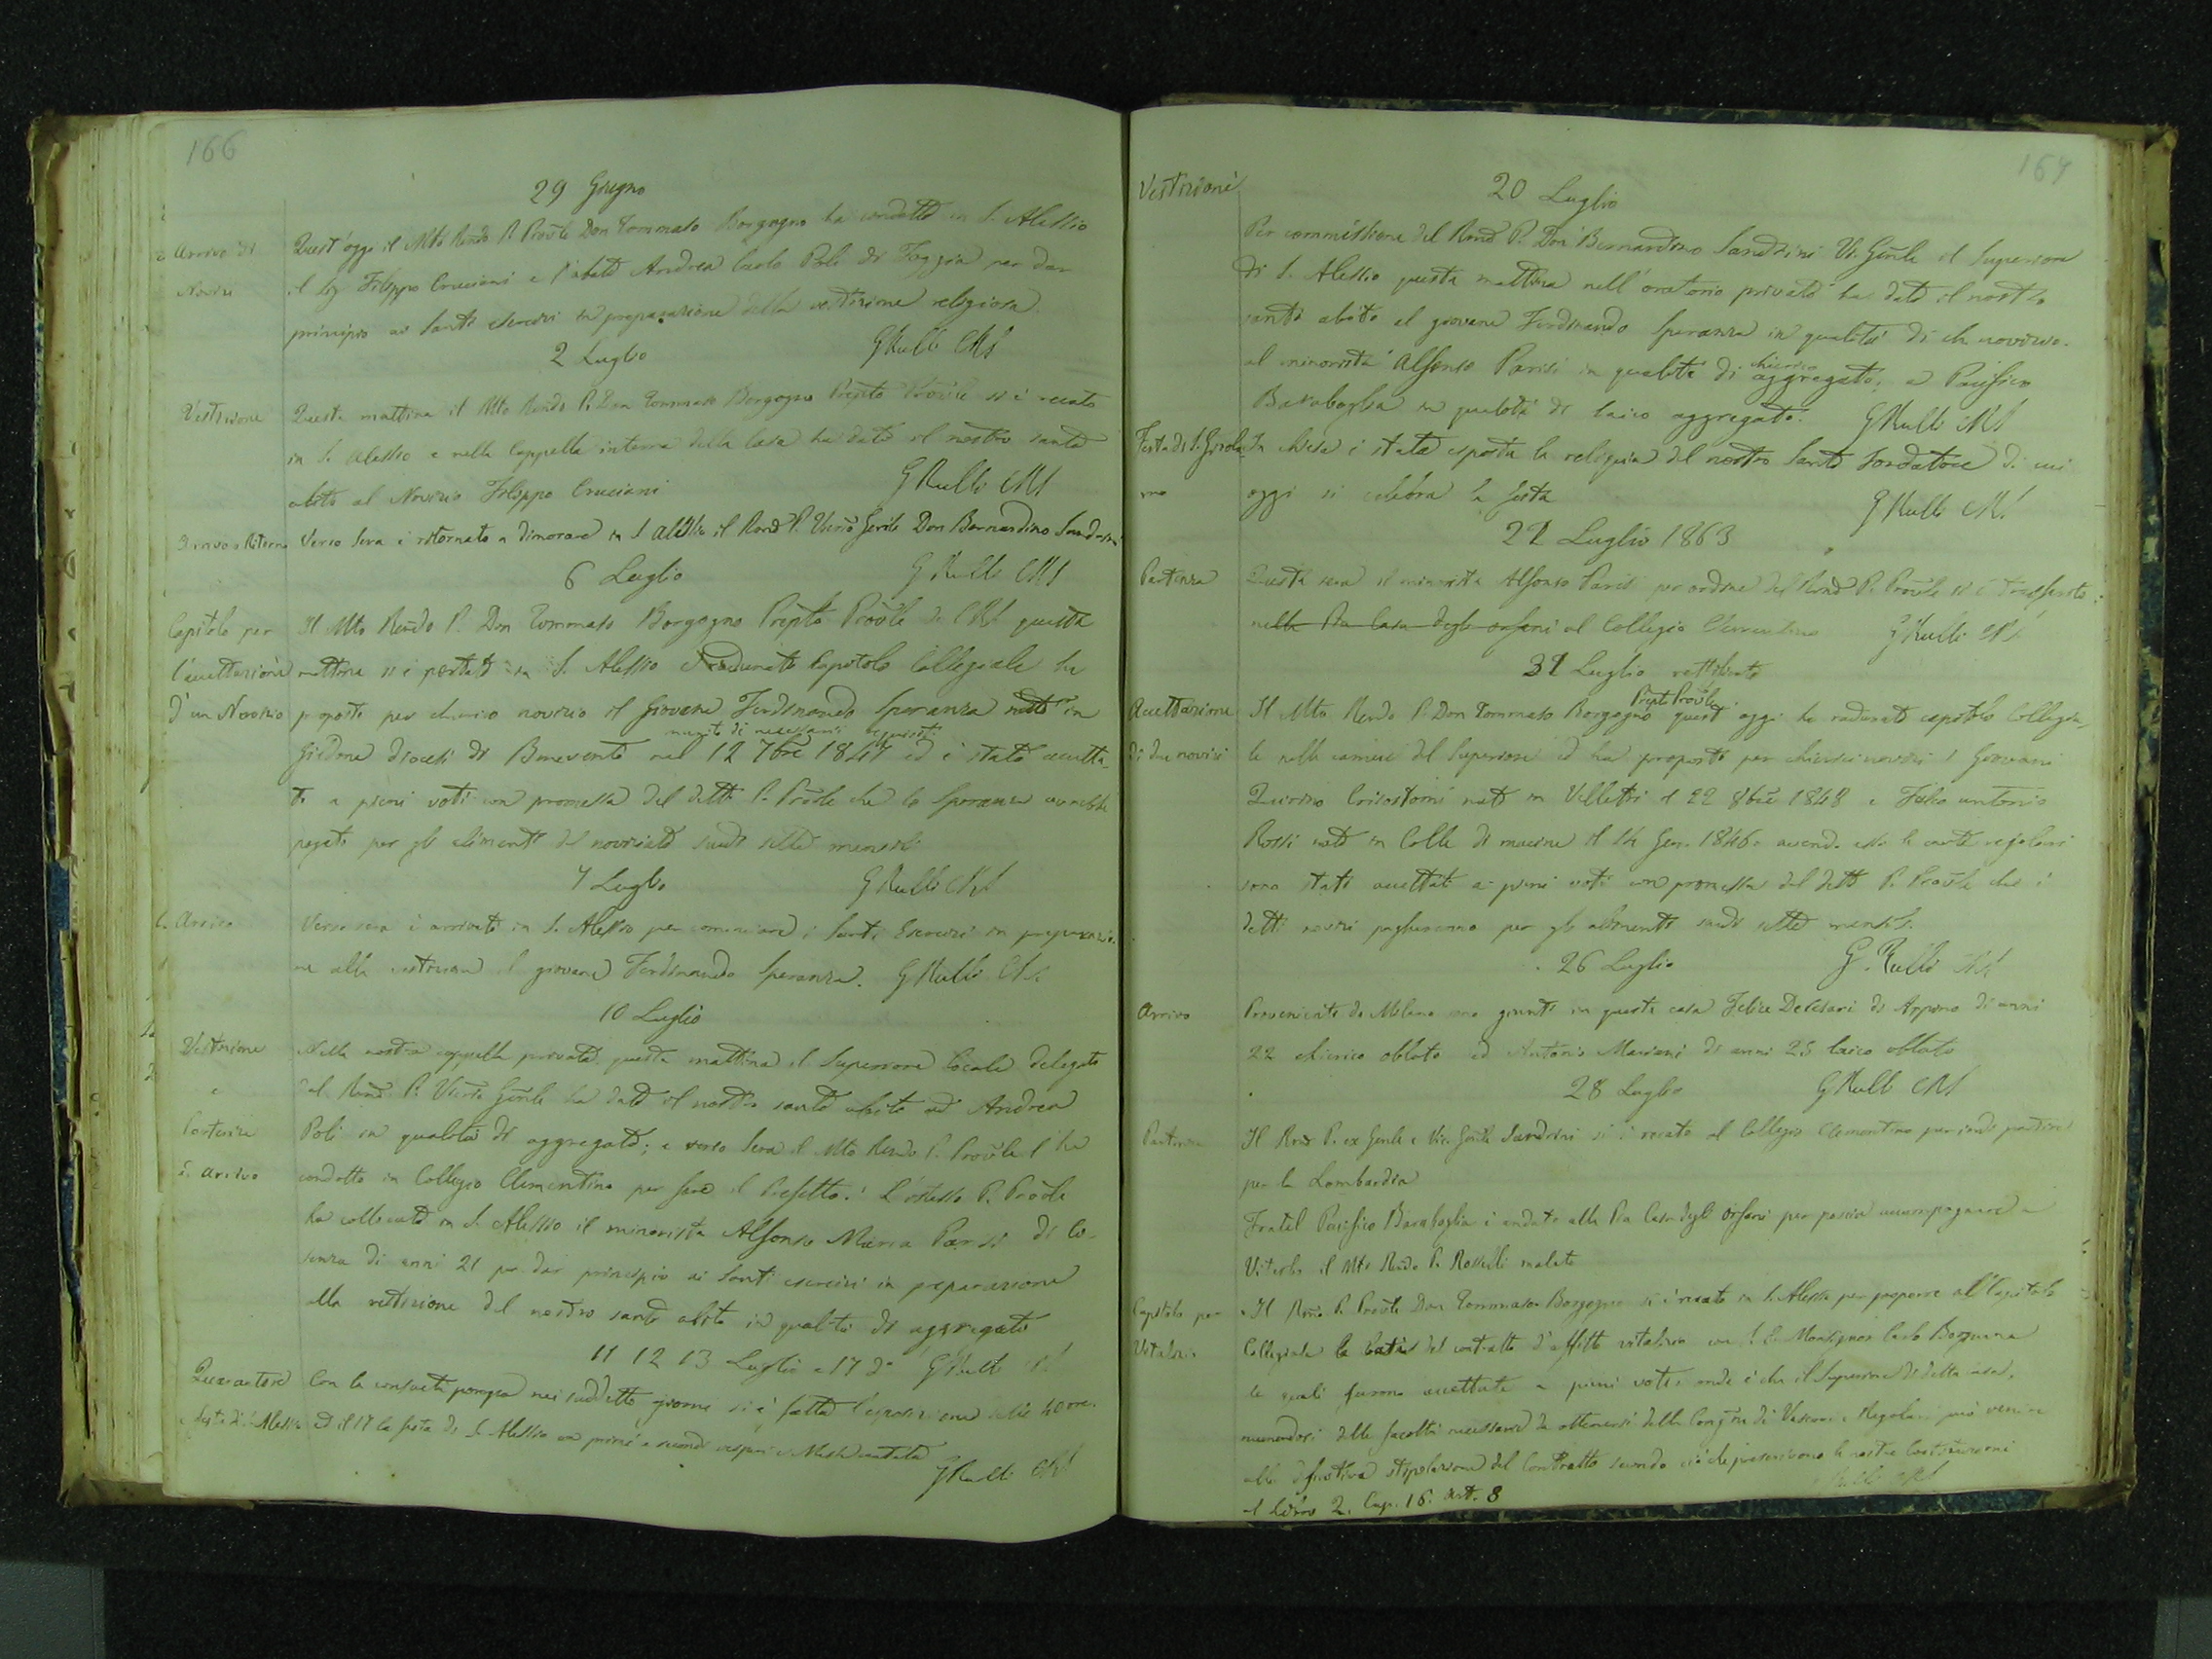 166
29 Giugno
Arrivo di
Novizi
Quest'oggi il Mto Rendo P. Proůle Don Tommaso Borgogno ha condotto in S. Alessio
il Sig Filippo Cruciani e l'abate Andrea Carlo Poli di Foggia per dar
principio ai Santi esercizi in preparazione della vestizione religiosa.
2 Luglio GRulli CRS
Vestizione
Questa mattina il Mto Rendo P. Don Tommaso Borgogno Prepto Proůle si è recato
in S. Alessio e nella Cappella interna della Casa ha dato il nostro santo
abito al Novizio Filippo Cruciani GRulli CRS
Arrivo e Ritorno
Verso sera è ritornato a dimorare in S Alessio il Rmo P. Vicrio Genle Don Bernardino Sandrini
6 Luglio GRulli CRS
Capitolo per
l'accettazione
d'un Novizio
Il Mto Rendo P. Don Tommaso Borgogno Prepto Proůle de CRS questa
mattina si è portato in S. Alessio e radunato Capitolo Collegiale ha
proposto per chierico novizio il Giovane Ferdinando Speranza nato in
munito di necessari requisiti
diocesi di Benevento nel 12 7bre 1847 ed è stato accetta-
to a pieni voti con promessa del detto P. Proůle che lo Speranza avrebbe
pagato per gli alimenti del noviziato scudi sette mensili
7 Luglio GRulli CRS
Arrivo
Verso sera è arrivato in S. Alessio per cominciare i Santi Esercizi in preparazio-
ne alla vestizione il giovane Ferdinando Speranza. GRulli CRS
10 Luglio
Vestizione
e
Partenza
e arrivo
Nella nostra cappella privata questa mattina il Superiore locale delegato
dal Rmo P. Vicrio Genle ha dato il nostro santo abito ad Andrea
Poli in qualità di aggregato; e verso sera il Mto Rendo P. Proůle l'ha
condotto in Collegio Clementino per fare il Prefetto. L'istesso P. Proůle
ha collocato in S. Alessio il minorista Alfonso Maria Parisi di Co-
senza di anni 21 per dar principio ai Santi esercizi in preparazione
alla vestizione del nostro santo abito in qualità di aggregato
11 12 13 Luglio e 17 do GRulli CRS
Quarantore
e festa di S. Alessio
Con la consueta pompa nei suddetti giorni si è fatta l'esposizione delle 40 ore.
ed il 17 la festa di S. Alessio con primi e secondi vesperi e Messa cantata
GRulli CRS
167
Vestizioni
20 Luglio
Per commissione del Rmo P. Don Bernardino Sandrini Vic. Genle il Superiore
di S. Alessio questa mattina nell'oratorio privato ha dato il nostro
santo abito al giovane Ferdinando Speranza in qualità di ch. novizio.
al minorista Alfonso Parisi in qualità di chierico aggregato, a Pacifico
Barabaglia in qualità di laico aggregato. GRulli CRS
Festa di S. Girola-
mo
In chiesa è stata esposta la reliquia del nostro Santo Fondatore di cui
oggi si celebra la festa GRulli CRS
21 Luglio 1863
Partenza
Questa sera il minorista Alfonso Parisi per ordine del Rmo P. Proůle si è trasferito
nella Pia Casa degli orfani al Collegio Clementino GRulli CRS
31 Luglio
Accettazione
di due novizi
Il Mto Rendo P. Don Tommaso Borgogno Prepto Proůle quest'oggi ha radunato capitolo Collegia-
le nelle camere del Superiore ed ha proposto per chierici novizi i Giovani
Quirino Crisostomi nato in Velletri il 22 8bre 1848 e antonio
Rossi nato in Colle di il 14 Gen. 1846. avendo essi le carte regolari
sono stati accettati a pieni voti con promessa del detto P. Proůle che i
detti novizi pagheranno per gli alimenti scudi sette mensili.
26 Luglio G. Rulli CRS
Arrivo
Provenienti da Milano sono giunti in questa casa Felice DeCesari di Arpino di anni
22 chierico oblato ed Antonio Mariani di anni 25 laico oblato
28 Luglio GRulli CRS
Partenza
Il Rmo P. ex Genle e Vic. Genle Sandrini si è recato al Collegio Clementino per indi partire
per la Lombardia
Fratel Pacifico Barabaglia è andato alla Pia Casa degli Orfani per poscia accompagnare a
Viterbo il Mto Rendo P. Rosselli malato
Capitolo per
Vitalizio
Il Rmo P. Proůle Don Tommaso Borgogno si è recato in S. Alessio per proporre al Capitolo
Collegiale le basi del contratto d'affitto vitalizio con S. E. Monsignor Carlo Borgnana
le quali furono accettate a pieni voti. onde è che il Superiore di detta casa,
munendosi delle facoltà necessarie da ottenersi dalla Congne di Vescovi e Regolari può venire
alla definitiva stipolazione del Contratto secondo ciò che prescrivono le nostre Costituzioni
al Libro 2. Cap. 16. art. 8 GRulli CRS